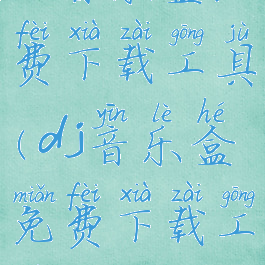 fèi xià zài gōng jù
费下载工具
yīn lè hé
(dj音乐盒
miǎn fèi xià zài gōng
免费下载工